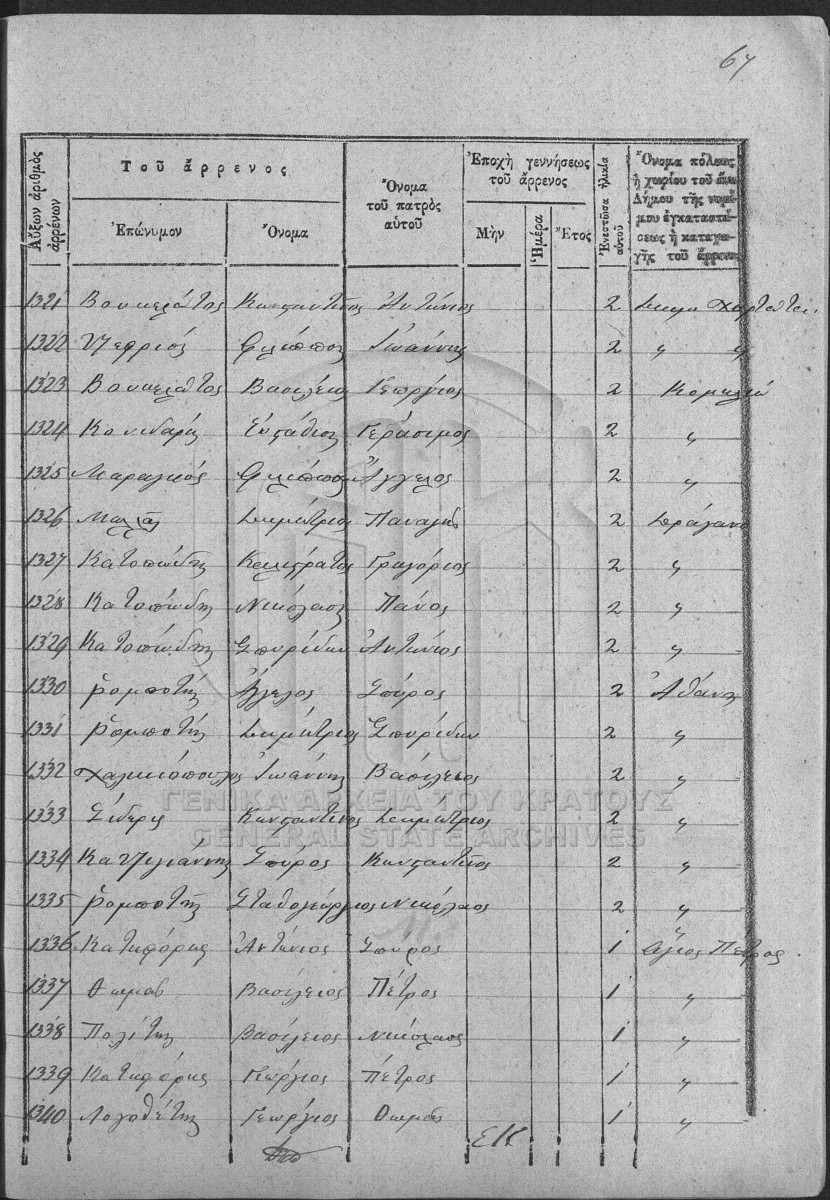 67
Αὔξων ἀριθμὸς ἀρρένων
Τοῦ ἄρρενος
Ἐπώνυμον
Ὄνομα
Ὄνομα τοῦ πατρὸς αὐτοῦ
Ἐποχὴ γεννήσεως τοῦ ἄρρενος
Μὴν
Ἡμέρα
Ἔτος
Ἐνεστῶσα ἡλικία αὐτοῦ
Ὄνομα πόλεως ἢ χωρίου τοῦ ἄνω Δήμου τῆς νομίμου ἐγκαταστάσεως ἢ καταγωγῆς τοῦ ἄρρενος
1321 Βουκελάτος Κωνσταντῖνος Ἀντώνιος 2
1322 Φίλιππος Ἰωάννης 2 " "
1323 Βουκελάτος Βασίλειος Γεώργιος 2 Κομηλιό
1324 Κονιδάρης Εὐστάθιος Γεράσιμος 2 "
1325 Μαραγκός Φίλιππος Ἄγγελος 2 "
1326 Δημήτριος Παναγής 2 Δράγανο
1327 Κατοπώδης Καλίστρατος Γρηγόριος 2 "
1328 Κατοπώδης Νικόλαος Πάνος 2 "
1329 Κατοπώδης Σπυρίδων Ἀντώνιος 2 "
1330 Ῥομποτής Ἄγγελος Σπύρος 2 Ἀθάνι
1331 Ῥομποτής Δημήτριος Σπυρίδων 2 "
1332 Χαλικιόπουλος Ἰωάννης Βασίλειος 2 "
1333 Σίδερης Κωνσταντῖνος Δημήτριος 2 "
1334 Κατζιγιάννης Σπύρος Κωνσταντῖνος 2 "
1335 Ῥομποτής Σταθογεώργιος Νικόλαος 2 "
1336 Κατηφόρης Ἀντώνιος Σπύρος 1 Ἅγιος Πέτρος
1337 Θωμᾶς Βασίλειος Πέτρος 1 "
1338 Πολίτης Βασίλειος Νικόλαος 1 "
1339 Κατηφόρης Γεώργιος Πέτρος 1 "
1340 Λογοθέτης Γεώργιος Θωμᾶς 1 "
ΓΕΝΙΚΑ ΑΡΧΕΙΑ ΤΟΥ ΚΡΑΤΟΥΣ
GENERAL STATE ARCHIVES